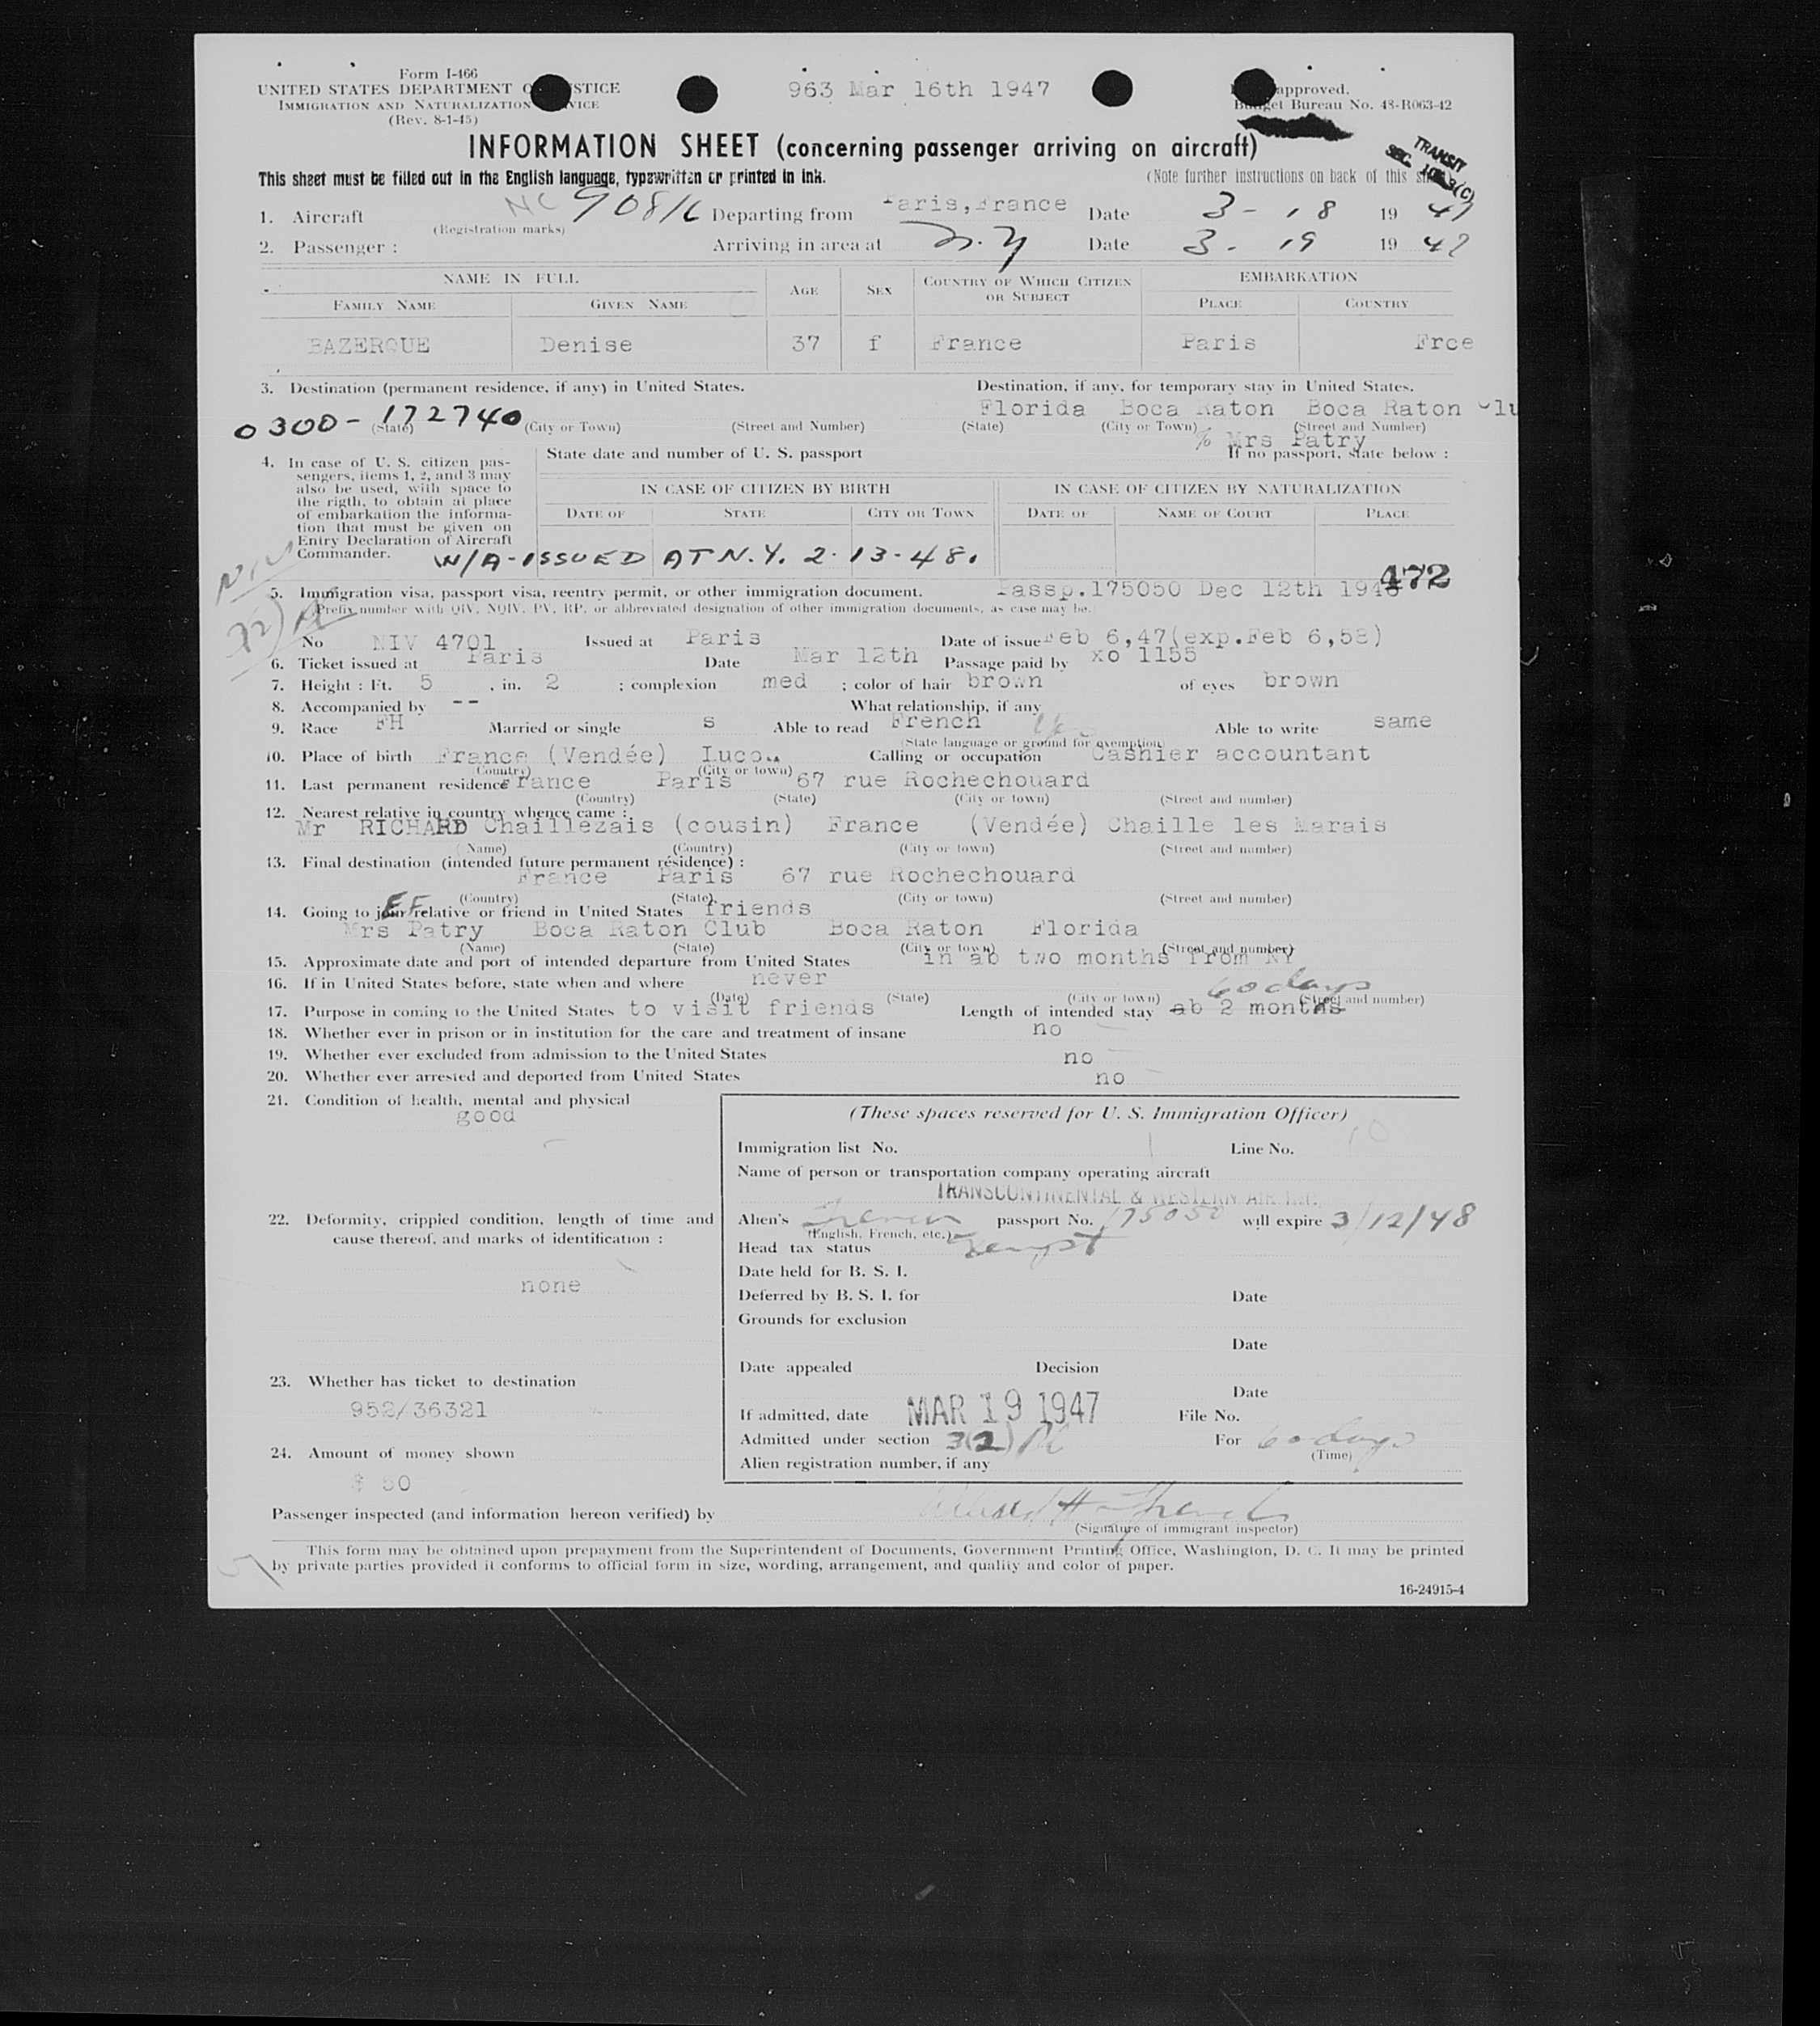 Form I-466
UNITED STATES DEPARTMENT O STICE
IMMIGRATION AND NATURALIZATION VICE
(Rev. 8-1-45)
963 Mar 16th 1947
approved.
Budget Bureau No. 43-R063-42
INFORMATION SHEET (concerning passenger arriving on aircraft)
TRANSIT
SEC.
This sheet must be filled out in the English language, typewritten or printed in ink.
(Note further instructions on back of this
1. Aircraft NC 90816 Departing from Paris,France Date 3 - 18 19 47
(Registration marks)
2. Passenger : Arriving in area at N.Y Date 3 - 19 19 47
NAME IN FULL AGE SEX COUNTRY OF WHICH CITIZEN OR SUBJECT EMBARKATION
FAMILY NAME GIVEN NAME PLACE COUNTRY
BAZERQUE Denise 37 f France Paris Frce
3. Destination (permanent residence, if any) in United States. Destination, if any, for temporary stay in United States.
Florida Boca Raton Boca Raton Clu
0300-172740
(State) (City or Town) (Street and Number) (State) (City or Town) (Street and Number)
% Mrs Patry
4. In case of U. S. citizen passengers, items 1, 2, and 3 may also be used, with space to the rigth, to obtain at place of embarkation the information that must be given on Entry Declaration of Aircraft Commander.
State date and number of U. S. passport If no passport, state below :
IN CASE OF CITIZEN BY BIRTH IN CASE OF CITIZEN BY NATURALIZATION
DATE OF STATE CITY OR TOWN DATE OF NAME OF COURT PLACE
W/A-ISSUED AT N.Y. 2-13-48.
NIV
472
5. Immigration visa, passport visa, reentry permit, or other immigration document. Passp.175050 Dec 12th 194
Prefix number with QIV, NQIV, PV, RP, or abbreviated designation of other immigration documents, as case may be.
No NIV 4701 Issued at Paris Date of issue Feb 6,47(exp.Feb 6,52)
6. Ticket issued at Paris Date Mar 12th Passage paid by xo 1155
7. Height : Ft. 5 , in. 2 ; complexion med ; color of hair brown of eyes brown
8. Accompanied by -- What relationship, if any
9. Race FH Married or single s Able to read French Able to write same
(State language or ground for exemption)
10. Place of birth France (Vendée) Lucon Calling or occupation Cashier accountant
(Country) (City or town)
11. Last permanent residence France Paris 67 rue Rochechouard
(Country) (State) (City or town) (Street and number)
12. Nearest relative in country whence came :
Mr RICHARD Chaillezais (cousin) France (Vendée) Chaille les Marais
(Name) (Country) (City or town) (Street and number)
13. Final destination (intended future permanent résidence) :
France Paris 67 rue Rochechouard
(Country) (State) (City or town) (Street and number)
14. Going to join relative or friend in United States friends
Mrs Patry Boca Raton Club Boca Raton Florida
(Name) (State) (City or town) (Street and number)
15. Approximate date and port of intended departure from United States in ab two months from NY
16. If in United States before, state when and where never
(Date) (State) (City or town) (Street and number)
60 days
17. Purpose in coming to the United States to visit friends Length of intended stay ab 2 months
18. Whether ever in prison or in institution for the care and treatment of insane no
19. Whether ever excluded from admission to the United States no
20. Whether ever arrested and deported from United States no
21. Condition of health, mental and physical
good
(These spaces reserved for U. S. Immigration Officer)
Immigration list No. 1 Line No. 10
Name of person or transportation company operating aircraft
TRANSCONTINENTAL & WESTERN AIR INC.
22. Deformity, crippled condition, length of time and cause thereof, and marks of identification :
none
Alien's French passport No. 175050 will expire 3/12/48
(English, French, etc.)
Head tax status Exempt
Date held for B. S. I.
Deferred by B. S. I. for Date
Grounds for exclusion
Date
Date appealed Decision
Date
23. Whether has ticket to destination
952/36321
If admitted, date MAR 19 1947 File No.
Admitted under section 3(2) For 60 days
(Time)
24. Amount of money shown
$ 50
Alien registration number, if any
Passenger inspected (and information hereon verified) by
(Signature of immigrant inspector)
This form may be obtained upon prepayment from the Superintendent of Documents, Government Printing Office, Washington, D. C. It may be printed
by private parties provided it conforms to official form in size, wording, arrangement, and quality and color of paper.
16-24915-4